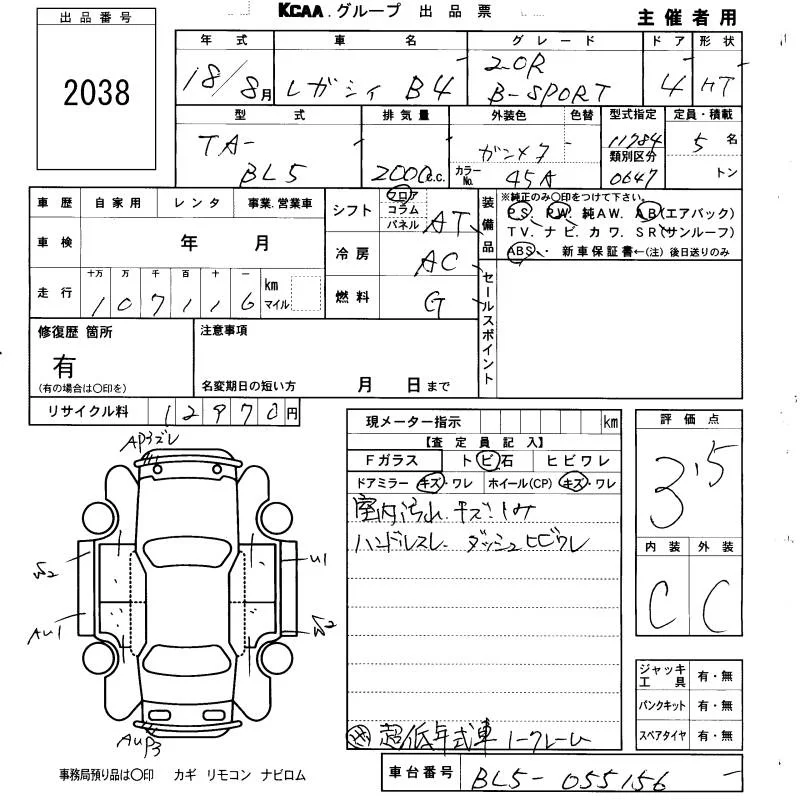 KCAA.グループ 出品票
主催者用
出品番号
2038
年式 車名 グレード ドア 形状
18/8月 レガシィ B4 2.0R B-SPORT 4 HT
型式 排気量 外装色 色替 型式指定 定員・積載
TA-BL5 2000c.c. ガンメタ 11784 5名
カラーNo. 45A 類別区分 0647 トン
車歴 自家用 レンタ 事業.営業車
車検 年 月
走行 十万 万 千 百 十 一 km マイル
107116
シフト フロア コラム パネル AT
冷房 AC
燃料 G
装備品
※純正のみ〇印をつけて下さい。
PS. PW. 純AW. AB(エアバック)
TV. ナビ. カワ. SR(サンルーフ)
ABS. 新車保証書←(注) 後日送りのみ
セールスポイント
修復歴 箇所
有
(有の場合は〇印を)
注意事項
名変期日の短い方 月 日まで
リサイクル料 12970円
現メーター指示 km
【査定員記入】
Fガラス ト ビ 石 ヒビワレ
ドアミラー キズ・ワレ ホイール(CP) キズ・ワレ
室内汚れ.キズ.シミ
ハンドルスレ ダッシュヒビワレ
超低年式車 ノークレーム
評価点
3.5
内装 外装
C C
AP3ズレ
U1
AU1
AUP3
ジャッキ工具 有・無
パンクキット 有・無
スペアタイヤ 有・無
事務局預り品は〇印 カギ リモコン ナビロム
車台番号 BL5-055156